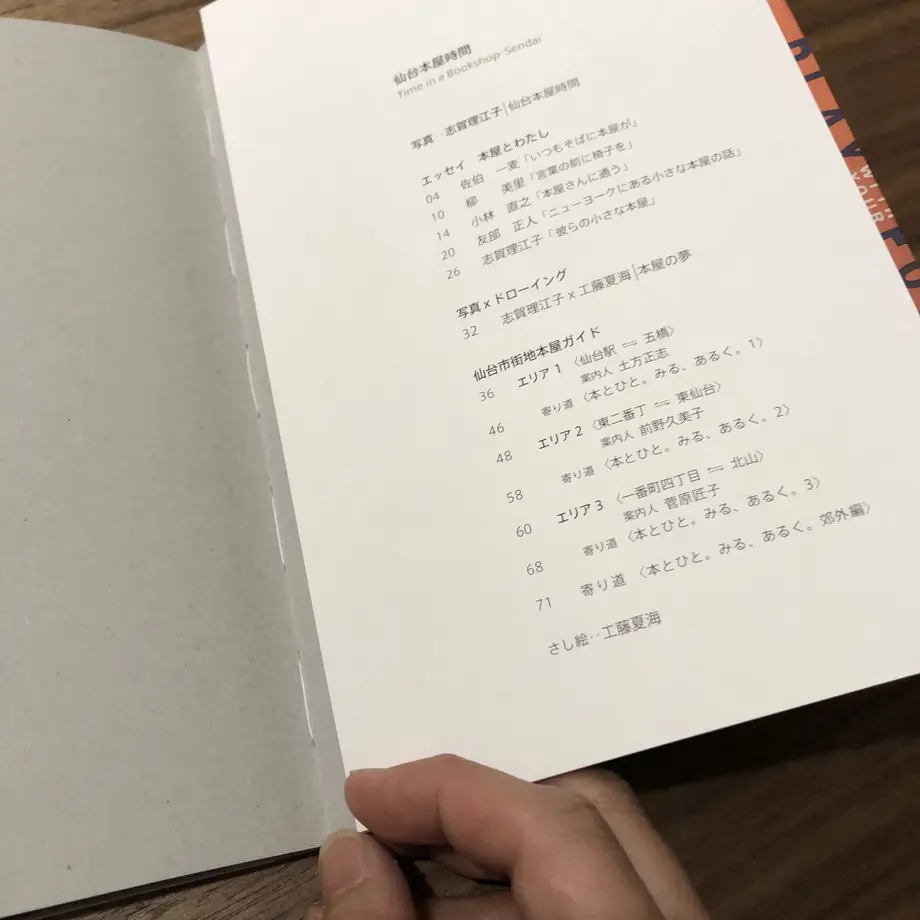 仙台本屋時間
Time in a Bookshop-Sendai
写真‥志賀理江子|仙台本屋時間
エッセイ 本屋とわたし
04 佐伯 一麦「いつもそばに本屋が」
10 柳 美里「言葉の前に椅子を」
14 小林 直之「本屋さんに通う」
20 友部 正人「ニューヨークにある小さな本屋の話」
26 志賀理江子「彼らの小さな本屋」
写真 x ドローイング
32 志賀理江子 x 工藤夏海|本屋の夢
仙台市街地本屋ガイド
36 エリア 1 〈仙台駅 ⇋ 五橋〉
案内人 土方正志
46 寄り道 〈本とひと。みる、あるく。1〉
48 エリア 2 〈東二番丁 ⇋ 東仙台〉
案内人 前野久美子
58 寄り道 〈本とひと。みる、あるく。2〉
60 エリア 3 〈一番町四丁目 ⇋ 北山〉
案内人 菅原匠子
68 寄り道 〈本とひと。みる、あるく。3〉
71 寄り道 〈本とひと。みる、あるく。郊外編〉
さし絵‥工藤夏海
PLAY
WITH
YOUR